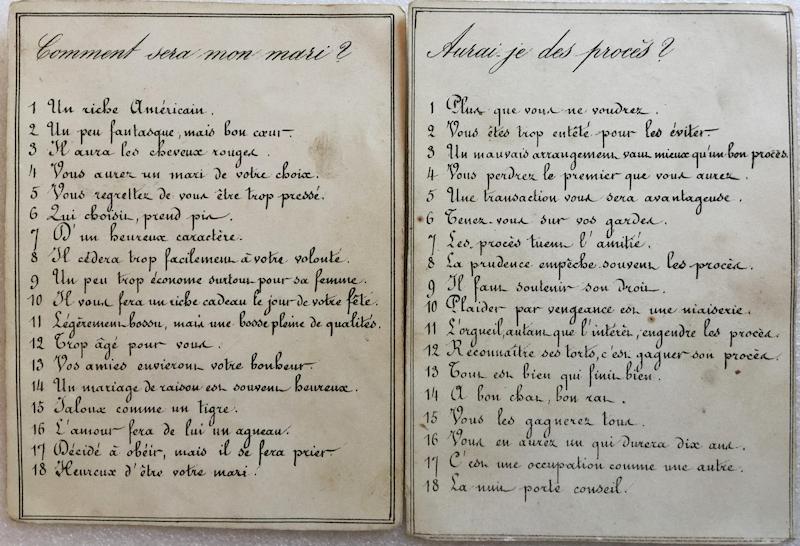 Comment sera mon mari ?
1 Un riche Américain.
2 Un peu fantasque, mais bon cœur.
3 Il aura les cheveux rouges.
4 Vous aurez un mari de votre choix.
5 Vous regrettez de vous être trop pressé.
6 Qui choisit, prend pis.
7 D'un heureux caractère.
8 Il cédera trop facilement à votre volonté.
9 Un peu trop économe surtout pour sa femme.
10 Il vous fera un riche cadeau le jour de votre fête.
11 Légèrement bossu, mais une bosse pleine de qualités.
12 Trop âgé pour vous.
13 Vos amies envieront votre bonheur.
14 Un mariage de raison est souvent heureux.
15 Jaloux comme un tigre.
16 L'amour fera de lui un agneau.
17 Décidé à obéir, mais il se fera prier
18 Heureux d'être votre mari.
Aurai-je des procès ?
1 Plus que vous ne voudrez.
2 Vous êtes trop entêté pour les éviter
3 Un mauvais arrangement vaut mieux qu'un bon procès.
4 Vous perdrez le premier que vous aurez.
5 Une transaction vous sera avantageuse.
6 Tenez-vous sur vos gardes.
7 Les procès tuent l'amitié.
8 La prudence empêche souvent les procès.
9 Il faut soutenir son droit.
10 Plaider par vengeance est une niaiserie.
11 L'orgueil, autant que l'intérêt, engendre les procès.
12 Reconnaître ses torts, c'est gagner son procès.
13 Tout est bien qui finit bien.
14 A bon chat, bon rat.
15 Vous les gagnerez tous.
16 Vous en aurez un qui durera dix ans.
17 C'est une occupation comme une autre.
18 La nuit porte conseil.